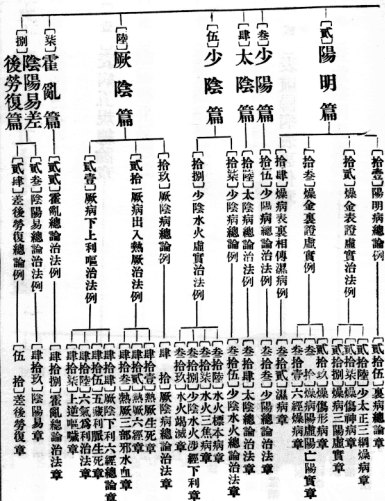 [貳]陽明篇
[叁]少陽篇
[肆]太陰篇
[伍]少陰篇
[陸]厥陰篇
[柒]霍亂篇
[捌]陰陽易差後勞復篇
[拾壹]陽明病總論例
[拾貳]燥金表證虛實治法例
[拾叁]燥金裏證虛實例
[拾肆]燥病表裏相傳濕病例
[拾伍]少陽病總論治法例
[拾陸]太陰病總論治法例
[拾柒]少陰病總論例
[拾捌]少陰水火虛實治法例
[拾玖]厥陰病總論例
[貳拾]厥病出入熱厥治法例
[貳壹]厥病下上利嘔治法例
[貳貳]霍亂總論治法例
[貳叁]陰陽易總論治法例
[貳肆]差後勞復總論例
貳拾伍]裏病總論章
貳拾陸]少太正三綱燥病章
貳拾柒]燥傷神病章
貳拾捌]燥病三陽虛實章
貳拾玖]燥傷形病章
叁拾]燥病陽虛亡陽實章
叁拾壹]六經燥病章
叁拾貳]濕病章
叁拾叁]少陽總論章
叁拾肆]太陰總論章
叁拾伍]少陰水火總論章
叁拾陸]水火標本病章
叁拾柒]水火二焦病章
叁拾捌]少陰水火涉經下利章
叁拾玖]水火竭滅章
肆拾]厥陰病總論治法章
肆拾壹]熱厥生死章
肆拾貳]熱厥六經章
肆拾叁]熱厥三部邪水血章
肆拾肆]厥陰下利六經總論章
肆拾伍]五臟下利脈生死章
肆拾陸]六氣爲利治法章
肆拾柒]上逆嘔噦章
肆拾捌]霍亂總論治法章
肆拾玖]陰陽易章
伍拾]差後勞復章